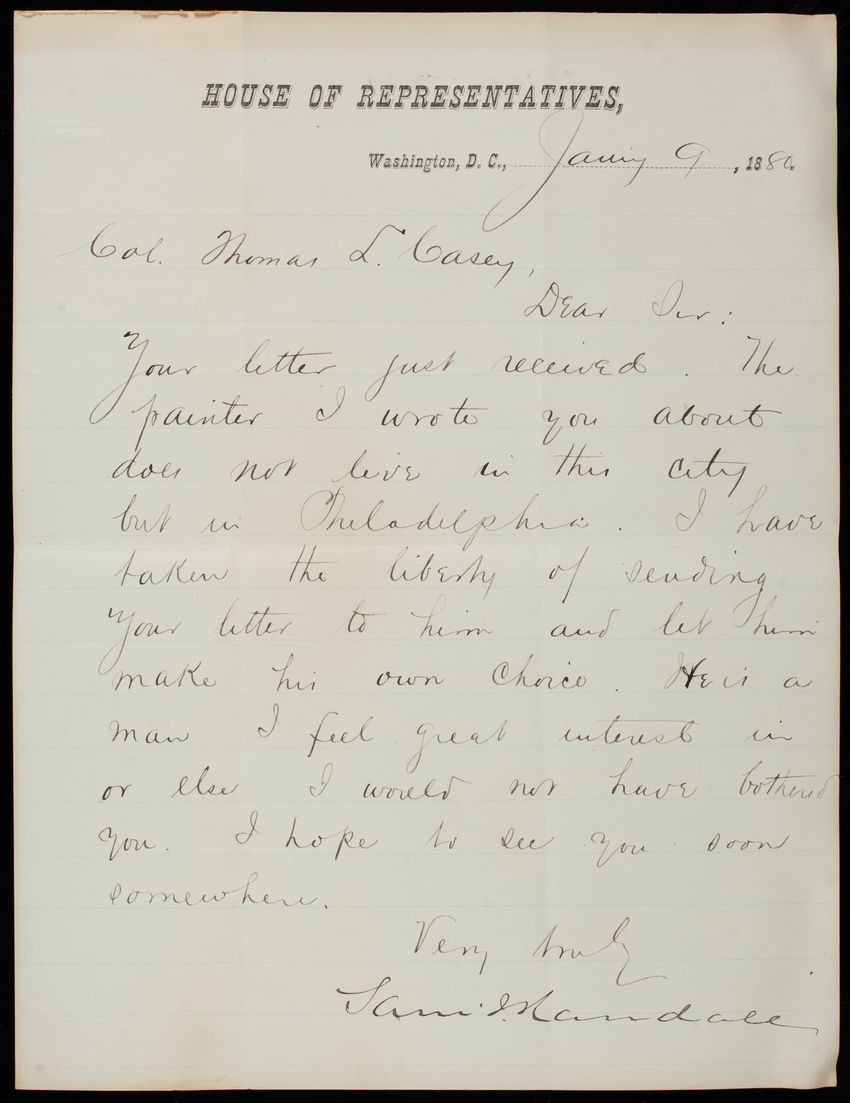 HOUSE OF REPRESENTATIVES,
Washington, D. C., Jany 9, 1880.
Col. Thomas L. Casey,
Dear Sir:
Your letter just received. The
painter I wrote you about
does not live in this city
but in Philadelphia. I have
taken the liberty of sending
Your letter to him and let him
make his own choice. He is a
man I feel great interest in
or else I would not have bothered
you. I hope to see you soon
somewhere.
Very truly
Sam. J. Randall